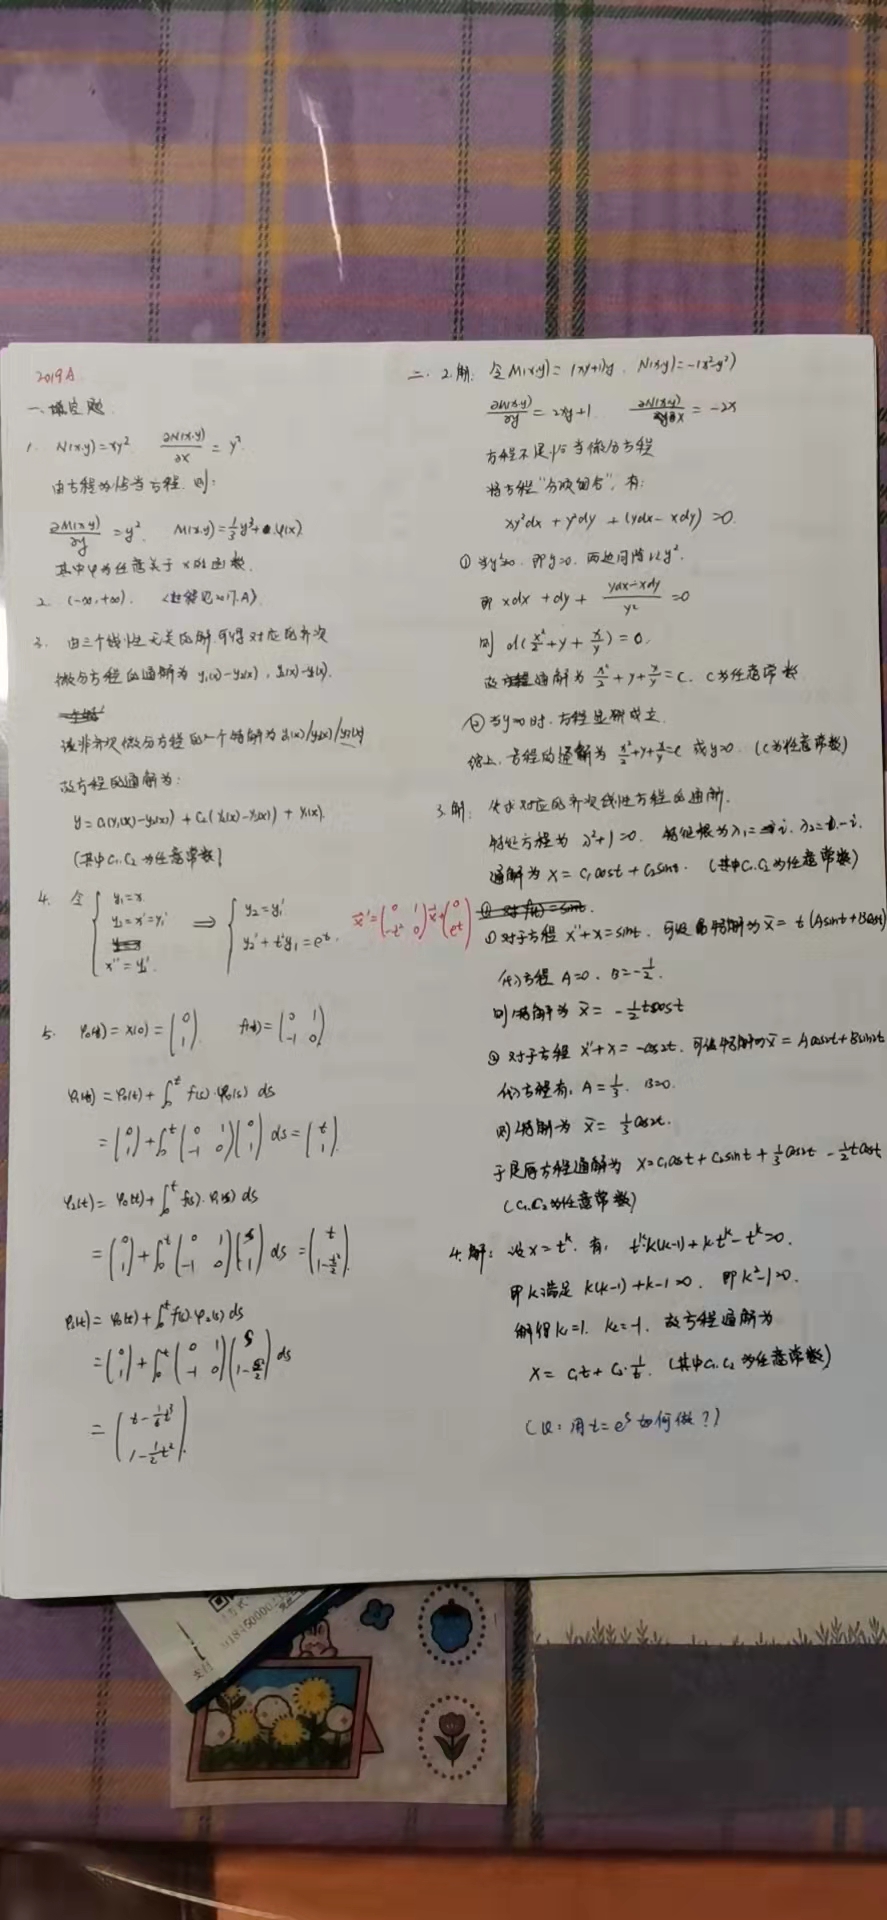 2019A
一、填空题
1. N(x,y)=xy² ∂N(x,y)/∂x = y²
由方程为恰当方程,则:
∂M(x,y)/∂y = y², M(x,y)=1/3 y³+φ(x)
其中φ为任意关于x的函数.
2. (-∞,+∞). (题解见2017.A)
3. 由三个线性无关的解,可得对应的齐次
微分方程的通解为 y₁(x)-y₂(x),
该非齐次微分方程的一个特解为 y₁(x)/y₂(x)/y₃(x)
故方程的通解为:
y=C₁(y₁(x)-y₂(x)) + C₂(y₁(x)-y₃(x)) + y₁(x).
(其中C₁,C₂为任意常数)
4. 令 { y₁=x
y₂=x'=y₁'
x''=y₂'
⇒ { y₂=y₁'
y₂'+t²y₁=eᵗ.
x⃗'=(0 1; -t² 0)x⃗+(0; eᵗ)
5. φ₀(t)=x(0)=(0; 1) f(t)=(0 1; -1 0)
φ₁(t)=φ₀(t)+∫₀ᵗ f(s)·φ₀(s) ds
=(0; 1)+∫₀ᵗ(0 1; -1 0)(0; 1) ds=(t; 1).
φ₂(t)=φ₀(t)+∫₀ᵗ f(s)·φ₁(s) ds
=(0; 1)+∫₀ᵗ(0 1; -1 0)(s; 1) ds=(t; 1-t²/2).
φ₃(t)=φ₀(t)+∫₀ᵗ f(s)·φ₂(s) ds
=(0; 1)+∫₀ᵗ(0 1; -1 0)(s; 1-s²/2) ds
=(t-1/6 t³; 1-1/2 t²).
二. 2.解: 令M(x,y)=(xy+1)y, N(x,y)=-(x²-y²)
∂M(x,y)/∂y=2xy+1 ∂N(x,y)/∂x=-2x
方程不是恰当微分方程
将方程"分项组合",有:
xy²dx+y²dy+(ydx-xdy)=0.
两边同除以y².
即 xdx+dy+(ydx-xdy)/y²=0
则 d(x²/2+y+x/y)=0.
故方程通解为 x²/2+y+x/y=C. C为任意常数
②当y=0时,方程显然成立.
综上,方程的通解为 x²/2+y+x/y=C 或y=0. (C为任意常数)
3.解: 先求对应的齐次线性方程的通解.
特征方程为 λ²+1=0. 特征根为λ₁=i, λ₂=-i.
通解为 x=C₁cost+C₂sint. (其中C₁,C₂为任意常数)
①对于方程 x''+x=sint, 可设特解为x̄=t(Asint+Bcost)
代入方程 A=0. B=-1/2.
则特解为 x̄=-1/2 tcost
②对于方程 x''+x=-cos2t, 可设特解为x̄=Acos2t+Bsin2t
代入方程有, A=1/3. B=0.
则特解为 x̄=1/3 cos2t.
于是原方程通解为 x=C₁cost+C₂sint+1/3 cos2t-1/2 tcost
(C₁,C₂为任意常数)
4.解: 设x=tᵏ, 有, tᵏ·k(k-1)+k·tᵏ-tᵏ=0.
即k满足 k(k-1)+k-1=0. 即k²-1=0.
解得k₁=1. k₂=-1. 故方程通解为
x=C₁t+C₂·1/t. (其中C₁,C₂为任意常数)
(Q: 用t=eˢ如何做?)
支付